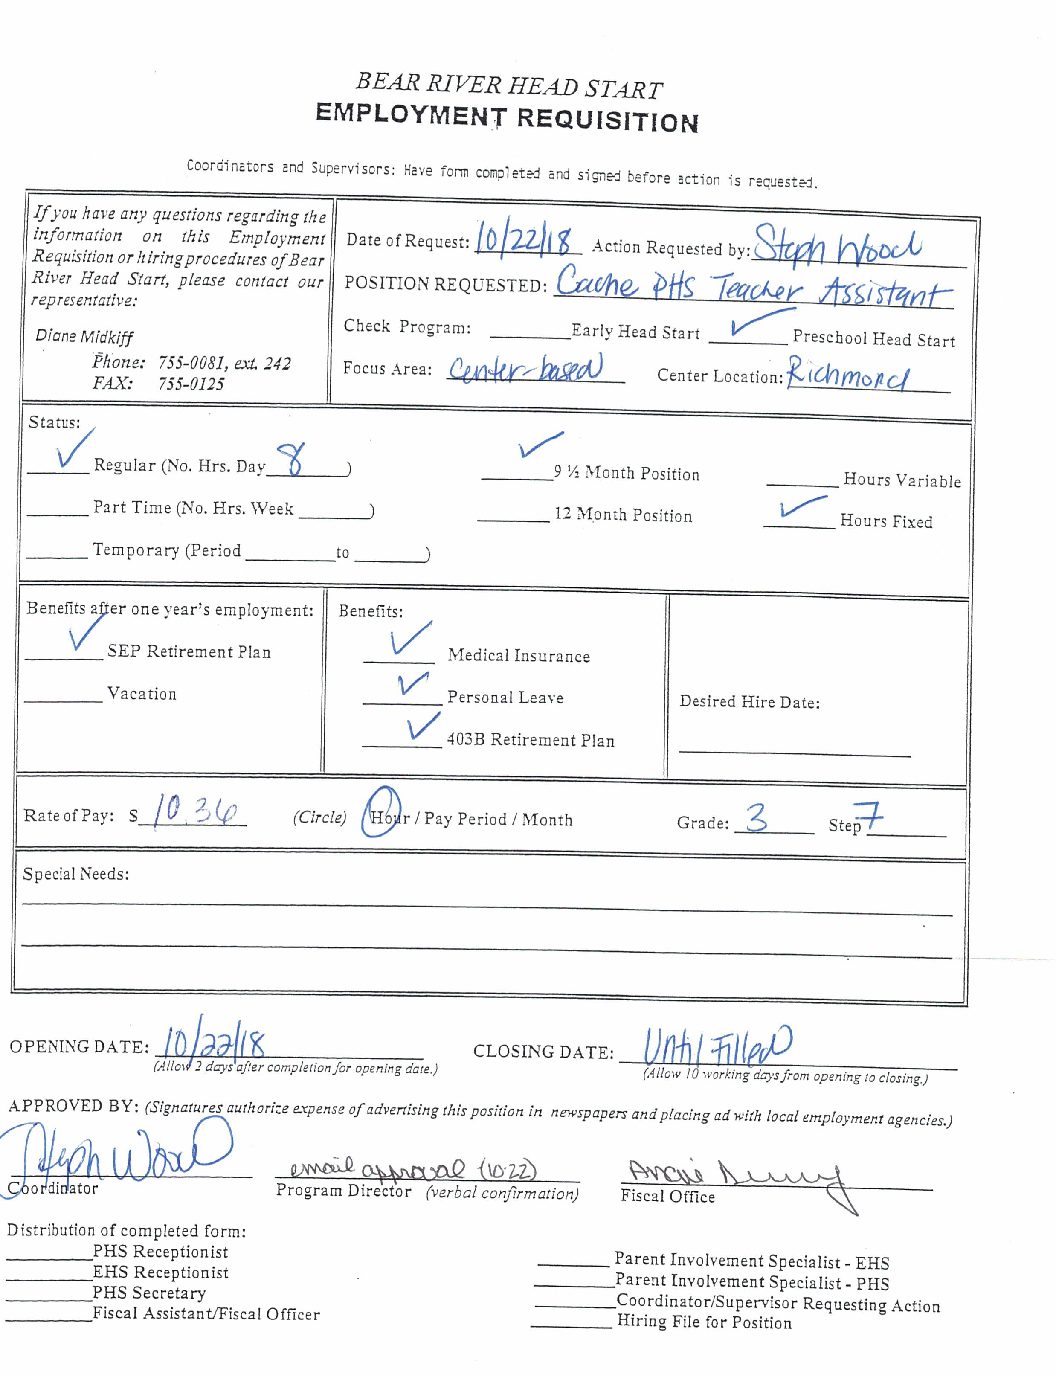 BEAR RIVER HEAD START
EMPLOYMENT REQUISITION
Coordinators and Supervisors: Have form completed and signed before action is requested.
If you have any questions regarding the
information on this Employment
Requisition or hiring procedures of Bear
River Head Start, please contact our
representative:
Diane Midkiff
Phone: 755-0081, ext. 242
FAX: 755-0125
Date of Request: 10/22/18 Action Requested by: Steph Wood
POSITION REQUESTED: Cache PHS Teacher Assistant
Check Program: ✓ Early Head Start ✓ Preschool Head Start
Focus Area: Center-based Center Location: Richmond
Status:
✓ Regular (No. Hrs. Day 8 ) ✓ 9 ½ Month Position Hours Variable
Part Time (No. Hrs. Week ) 12 Month Position ✓ Hours Fixed
Temporary (Period to )
Benefits after one year's employment:
✓ SEP Retirement Plan
Vacation
Benefits:
✓ Medical Insurance
✓ Personal Leave
✓ 403B Retirement Plan
Desired Hire Date:
Rate of Pay: $ 10.36 (Circle) Hour / Pay Period / Month Grade: 3 Step 7
Special Needs:
OPENING DATE: 10/22/18 CLOSING DATE: Until Filled
(Allow 2 days after completion for opening date.) (Allow 10 working days from opening to closing.)
APPROVED BY: (Signatures authorize expense of advertising this position in newspapers and placing ad with local employment agencies.)
Steph Wood email approval (10.22) Angie
Coordinator Program Director (verbal confirmation) Fiscal Office
Distribution of completed form:
PHS Receptionist
EHS Receptionist
PHS Secretary
Fiscal Assistant/Fiscal Officer
Parent Involvement Specialist - EHS
Parent Involvement Specialist - PHS
Coordinator/Supervisor Requesting Action
Hiring File for Position